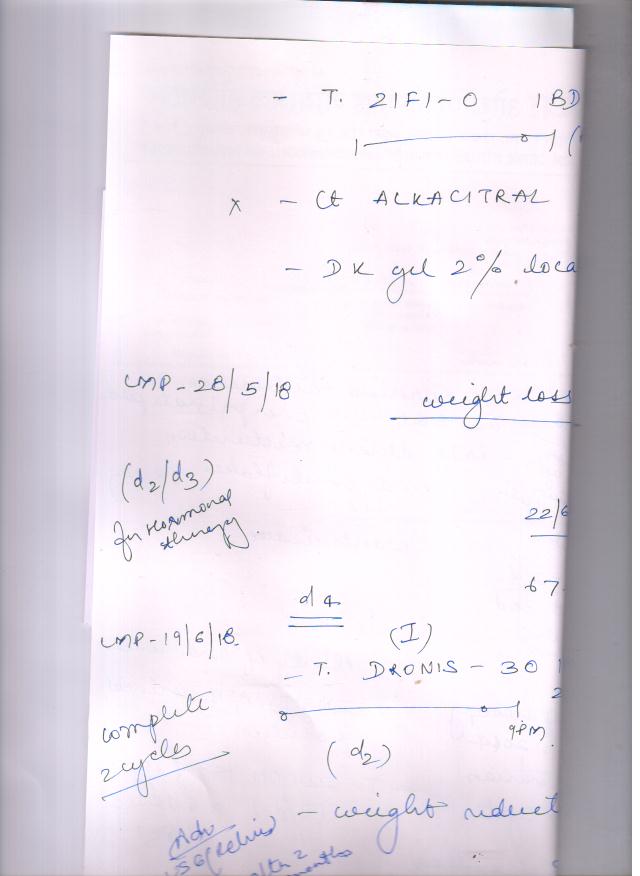 - T. ZIFI-O 1 BD
x - Ct ALKACITRAL
- DK gel 2% loca
LMP - 28/5/18
weight loss
(d2/d3)
for Hormonal
therapy.
22/6
67
d4
LMP - 19/6/18.
(I)
- T. DRONIS - 30
9PM
complete
2 cycles
(d2)
- weight reduct
Adv
USG (Pelvis)
after 2
months